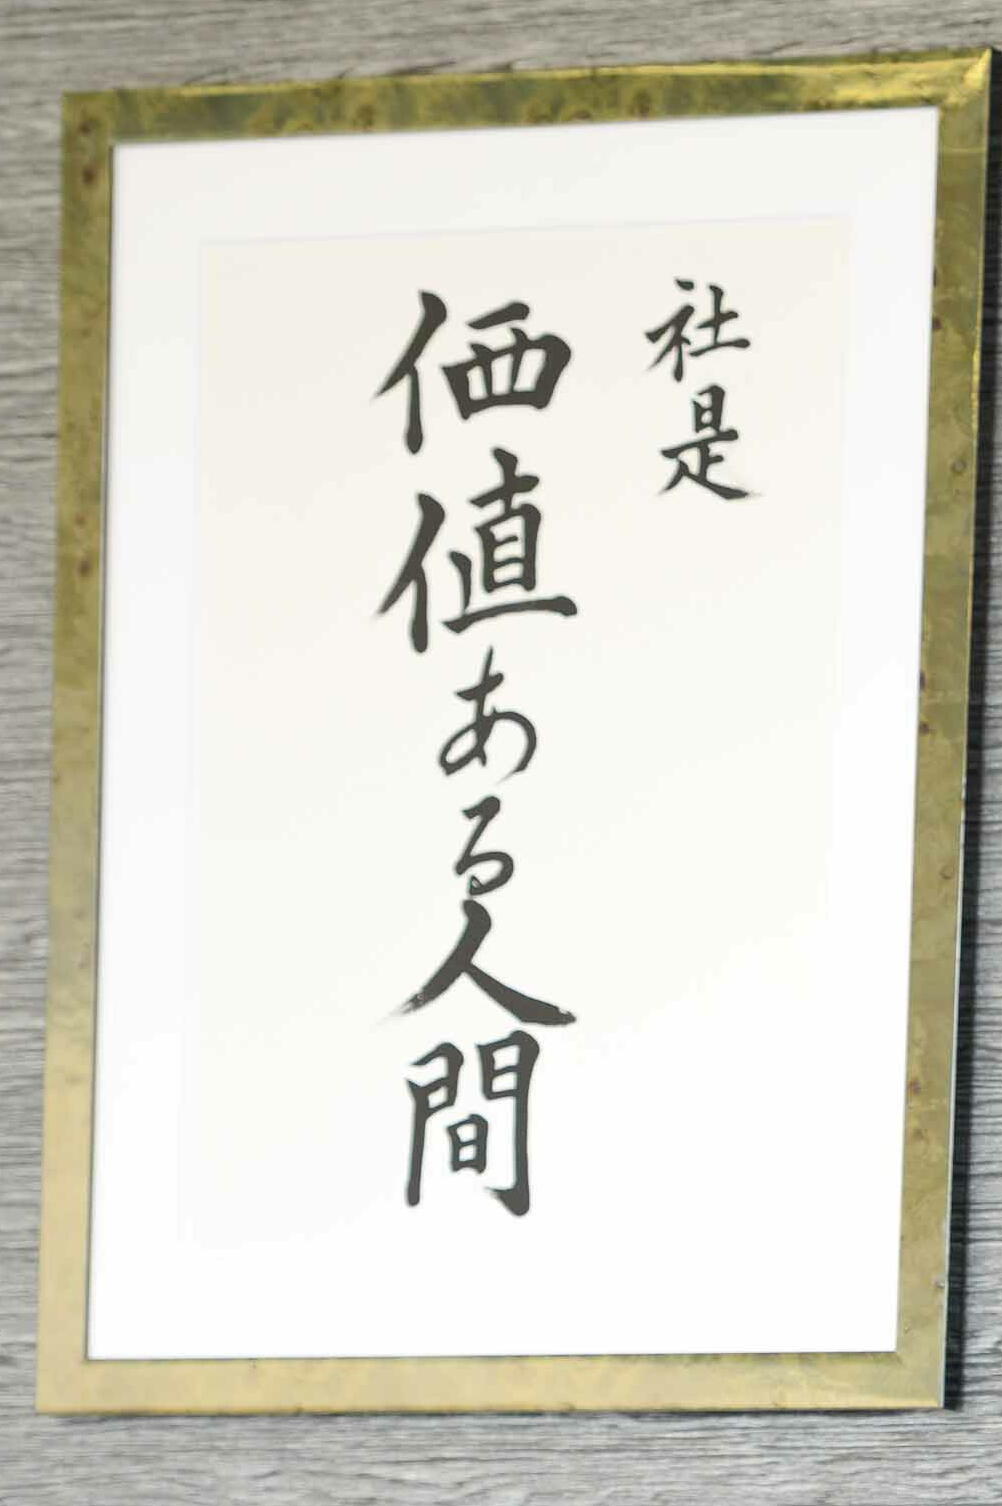 社是
価値ある人間